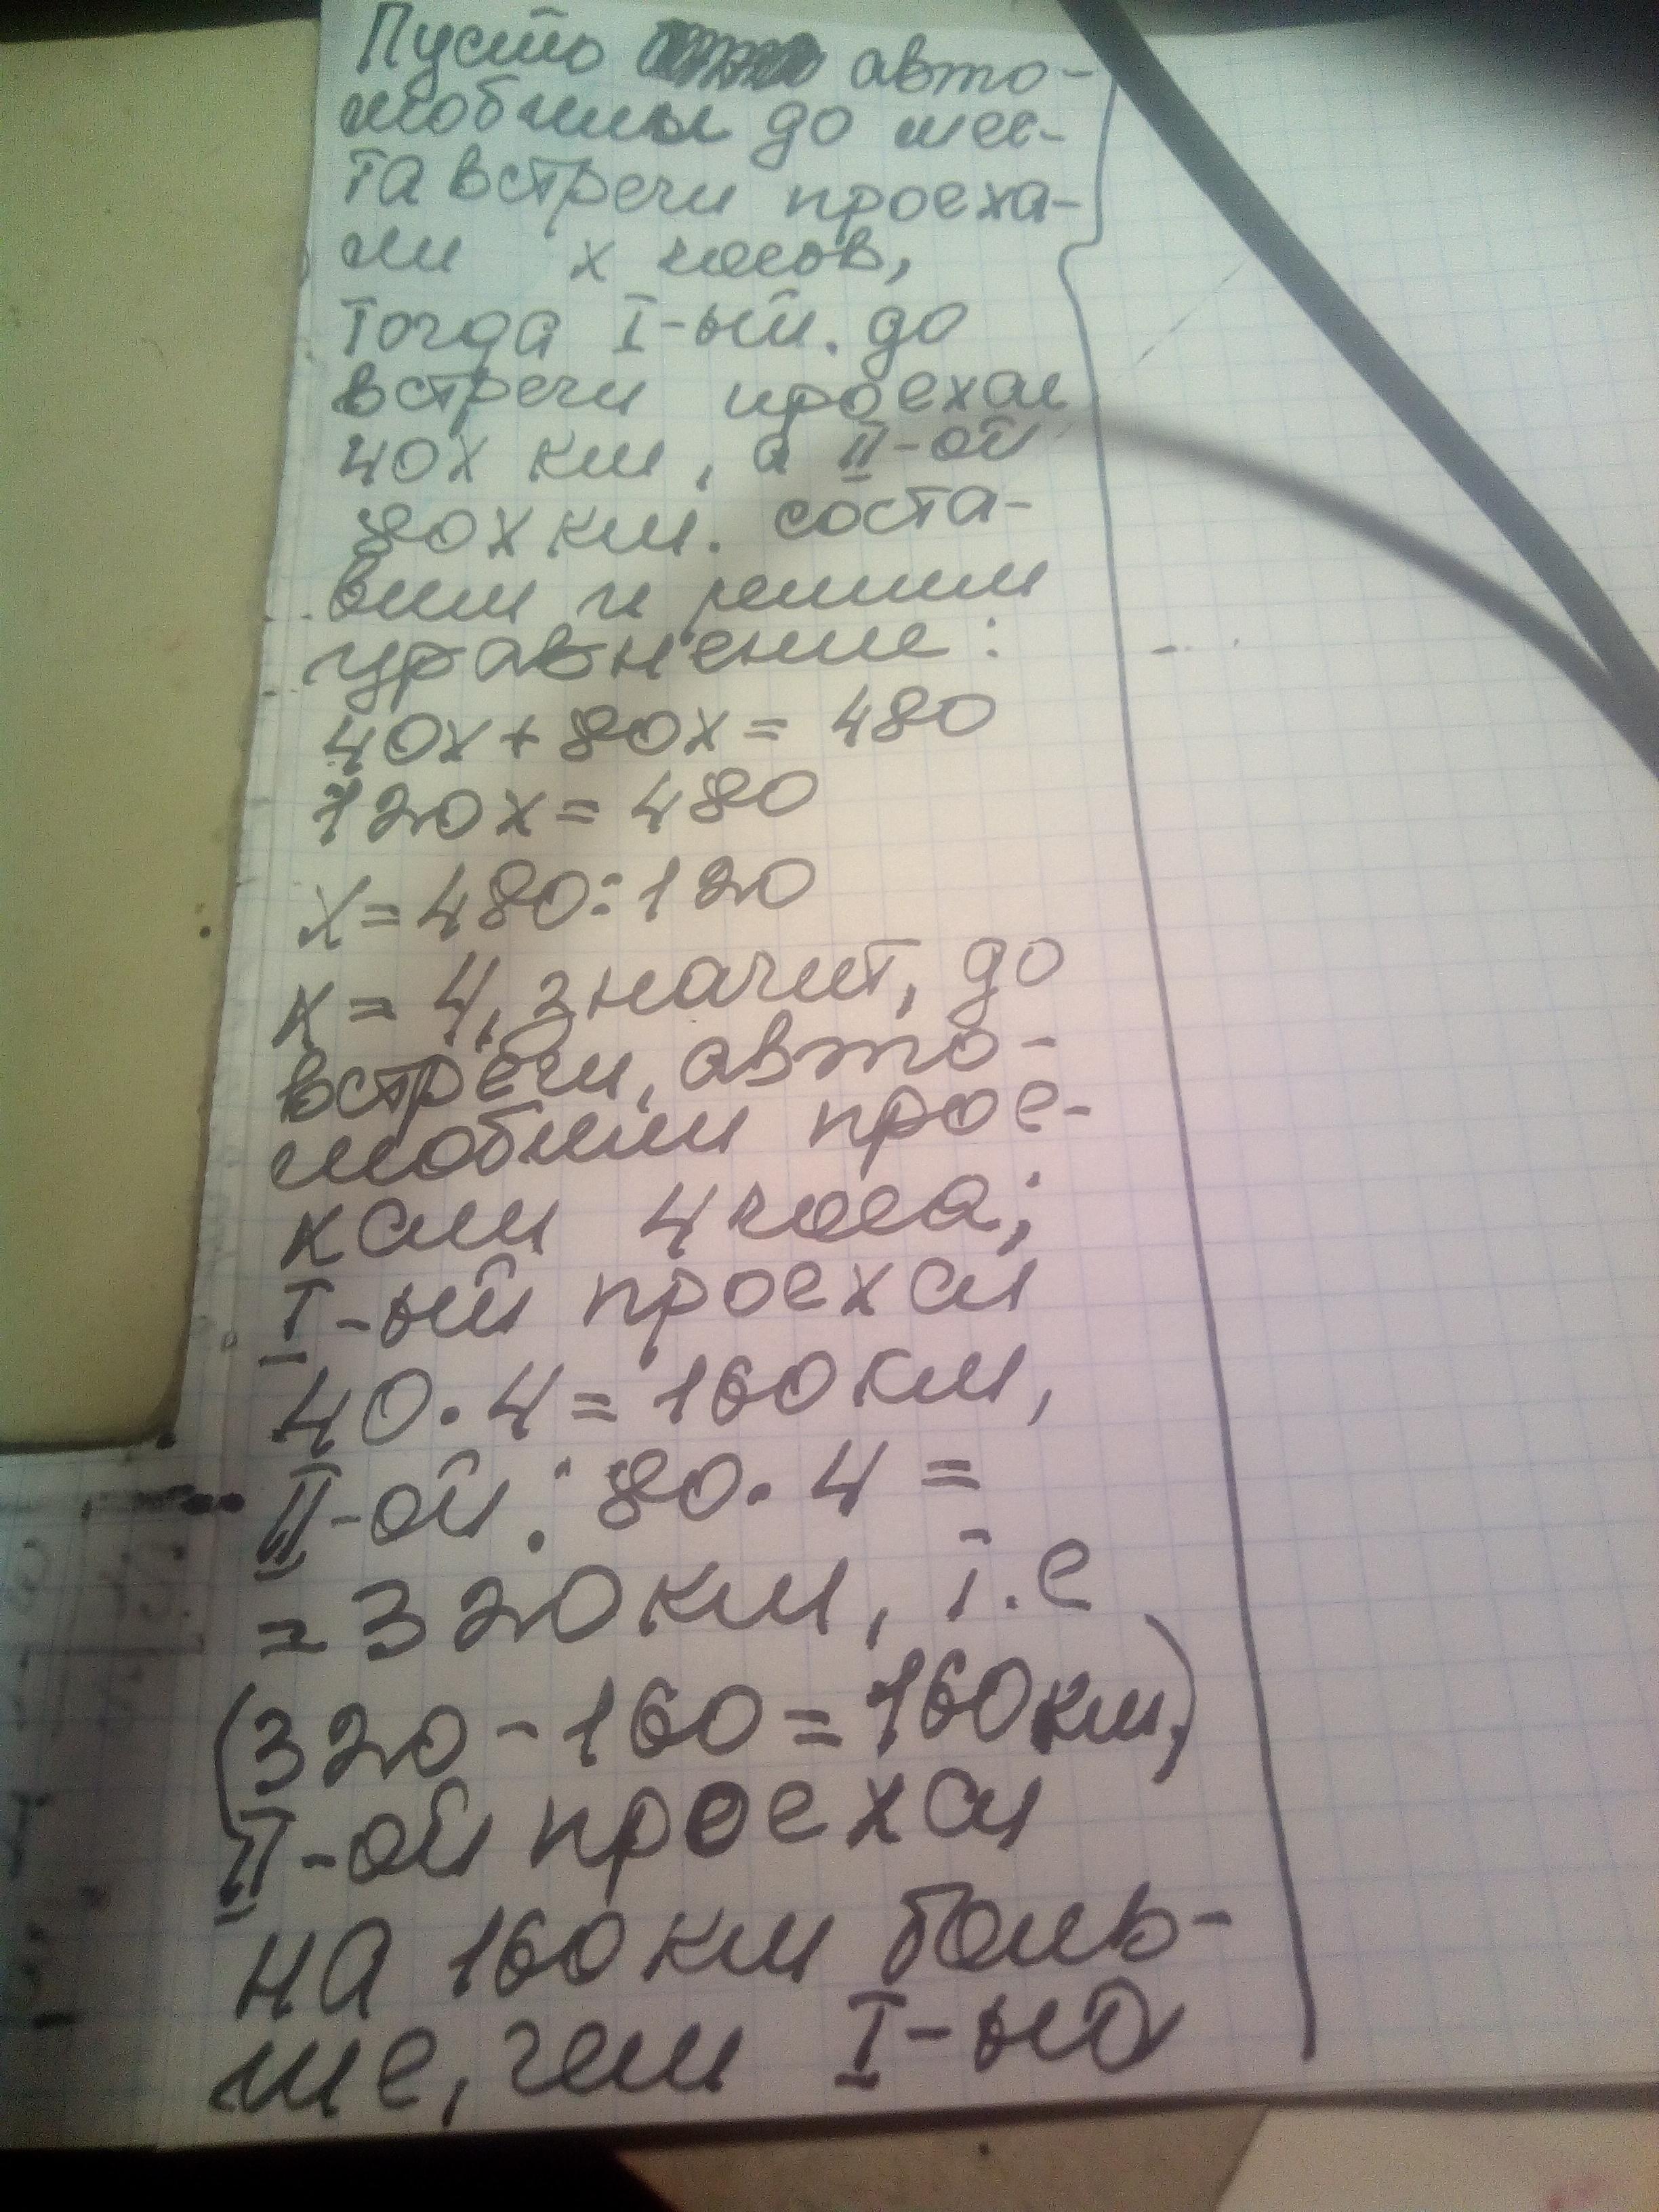 Пусть авто-
мобили до мес-
та встречи проеха-
ли х часов,
тогда I-ый. до
встречи проехал
40х км, а II-ой
80х км. соста-
вим и решим
уравнение:
40х + 80х = 480
120х = 480
х = 480 : 120
х = 4, значит, до
встречи, авто-
мобили прое-
хали 4 часа;
I-ый проехал
40 · 4 = 160 км,
II-ой : 80 · 4 =
= 320 км, т.е
(320 - 160 = 160 км,)
II-ой проехал
на 160 км боль-
ше, чем I-ый